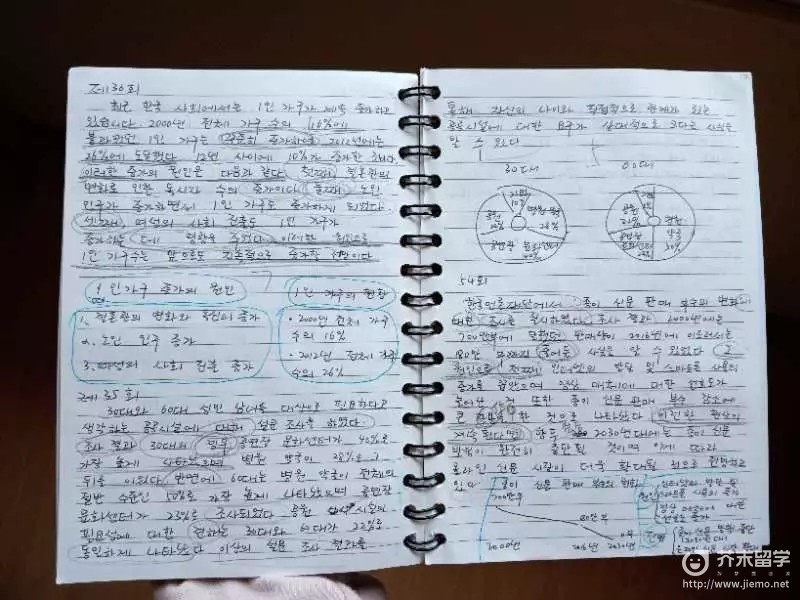 제36회
최근 한국 사회에서는 1인 가구가 계속 증가하고
있습니다. 2000년 전체 가구 수의 16%에
불과했던 1인 가구는 꾸준히 증가하여 2012년에는
26%에 도달했다. 12년 사이에 10%가 증가한 것이다.
이러한 증가의 원인은 다음과 같다. 첫째, 결혼관의
변화로 인한 독신자 수의 증가이다. 둘째, 노인
인구가 증가하면서 1인 가구도 증가하게 되었다.
셋째, 여성의 사회 진출도 1인 가구가
증가하는 데에 영향을 주었다. 이러한 원인으로
1인 가구수는 앞으로도 지속적으로 증가할 전망이다.
1인 가구 증가의 원인
1. 결혼관의 변화와 독신의 증가
2. 노인 인구 증가
3. 여성의 사회 진출 증가
1인 가구의 현황
· 2000년 전체 가구
수의 16%
· 2012년 전체 가구
수의 26%
제35회
30대와 60대 성인 남녀를 대상으로 필요하다고
생각하는 공공시설에 대해 설문 조사를 하였다.
조사 결과 30대의 경우 공연장 문화센터가 40%로
가장 높게 나타났으며 병원 약국이 28%로 그
뒤를 이었다. 반면에 60대는 병원 약국이 전체의
절반 수준인 50%로 가장 높게 나타났으며 공연장
문화센터가 23%로 조사되었다. 공원
필요성에 대한 견해는 30대와 60대가 22%로
동일하게 나타났다. 이상의 설문 조사 결과를
통해 자신의 나이와 직접적으로 관계가 있는
공공시설에 대한 요구가 상대적으로 크다는 사실을
알 수 있었다
30대
60대
기타
10%
병원 약국
28%
공원
22%
공연장 문화센터
40%
기타
공원
22%
병원
약국
50%
공연장
문화센터
54회
한국언론재단에서 종이 신문 판매 부수의 변화에
대한 조사를 실시하였다. 조사 결과 2000년에는
700만부에 달했던 판매량이 2016년에 이르러서는
80만 줄어든 사실을 알 수 있었다. 그
원인으로 첫째, 인터넷의 발달 및 스마트폰 사용의
증가를 매체에 대한 선호도가
높아진 것 또한 종이 신문 판매 부수 감소에
큰 한 것으로 나타났다. 이러한 현상이
계속된다면 향후 2030년대에는 종이 신문
발행이 완전히 중단될 것이며 이에 따라
온라인 신문 시장이 더욱 확대될 것으로 전망하고
있다.
종이 신문 판매 부수의 변화
700만부
80만부
0부
2000년
2016년 2030년
원인
인터넷의 발달 및
스마트폰 사용의 증가
영상 매체에 대한
선호도 증가
전망
종이 신문 발행 중단
(2030년대)
온라인 신문 시장 확대
芥末留学
http://www.jiemo.net/